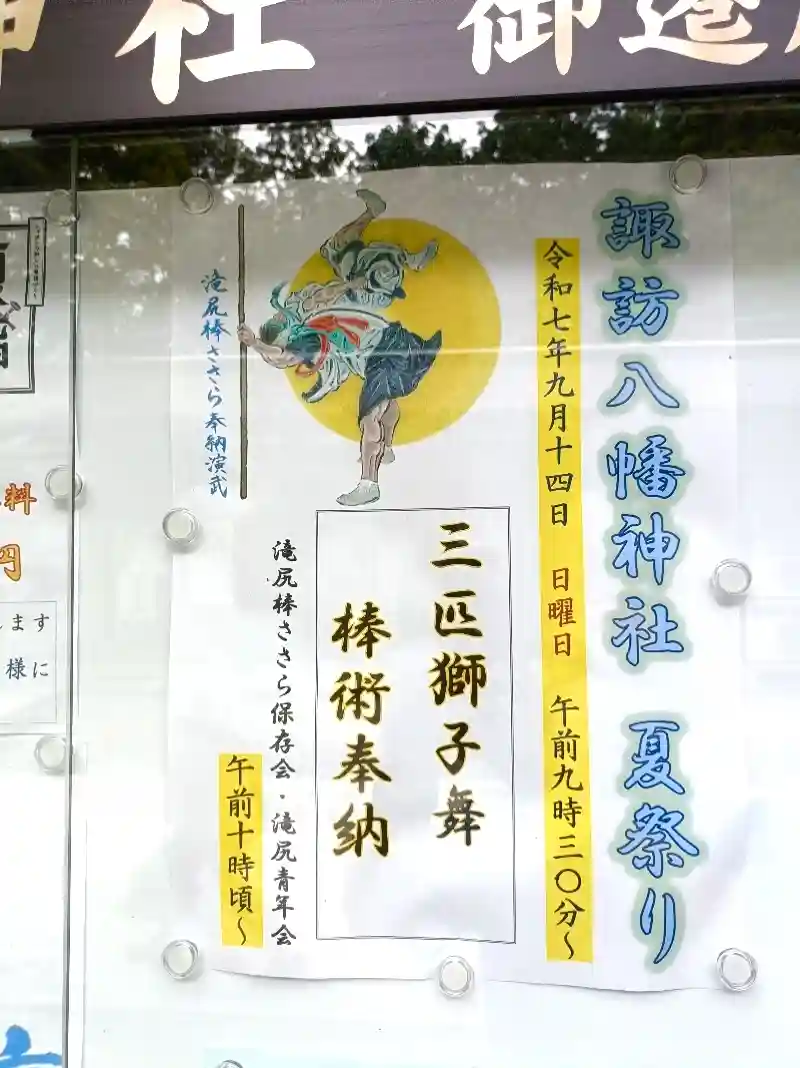 社 御造
諏訪八幡神社 夏祭り
令和七年九月十四日 日曜日 午前九時三〇分〜
三匹獅子舞
棒術奉納
滝尻棒ささら保存会・滝尻青年会
午前十時頃〜
滝尻棒ささら奉納演武
料
円
ます
様に